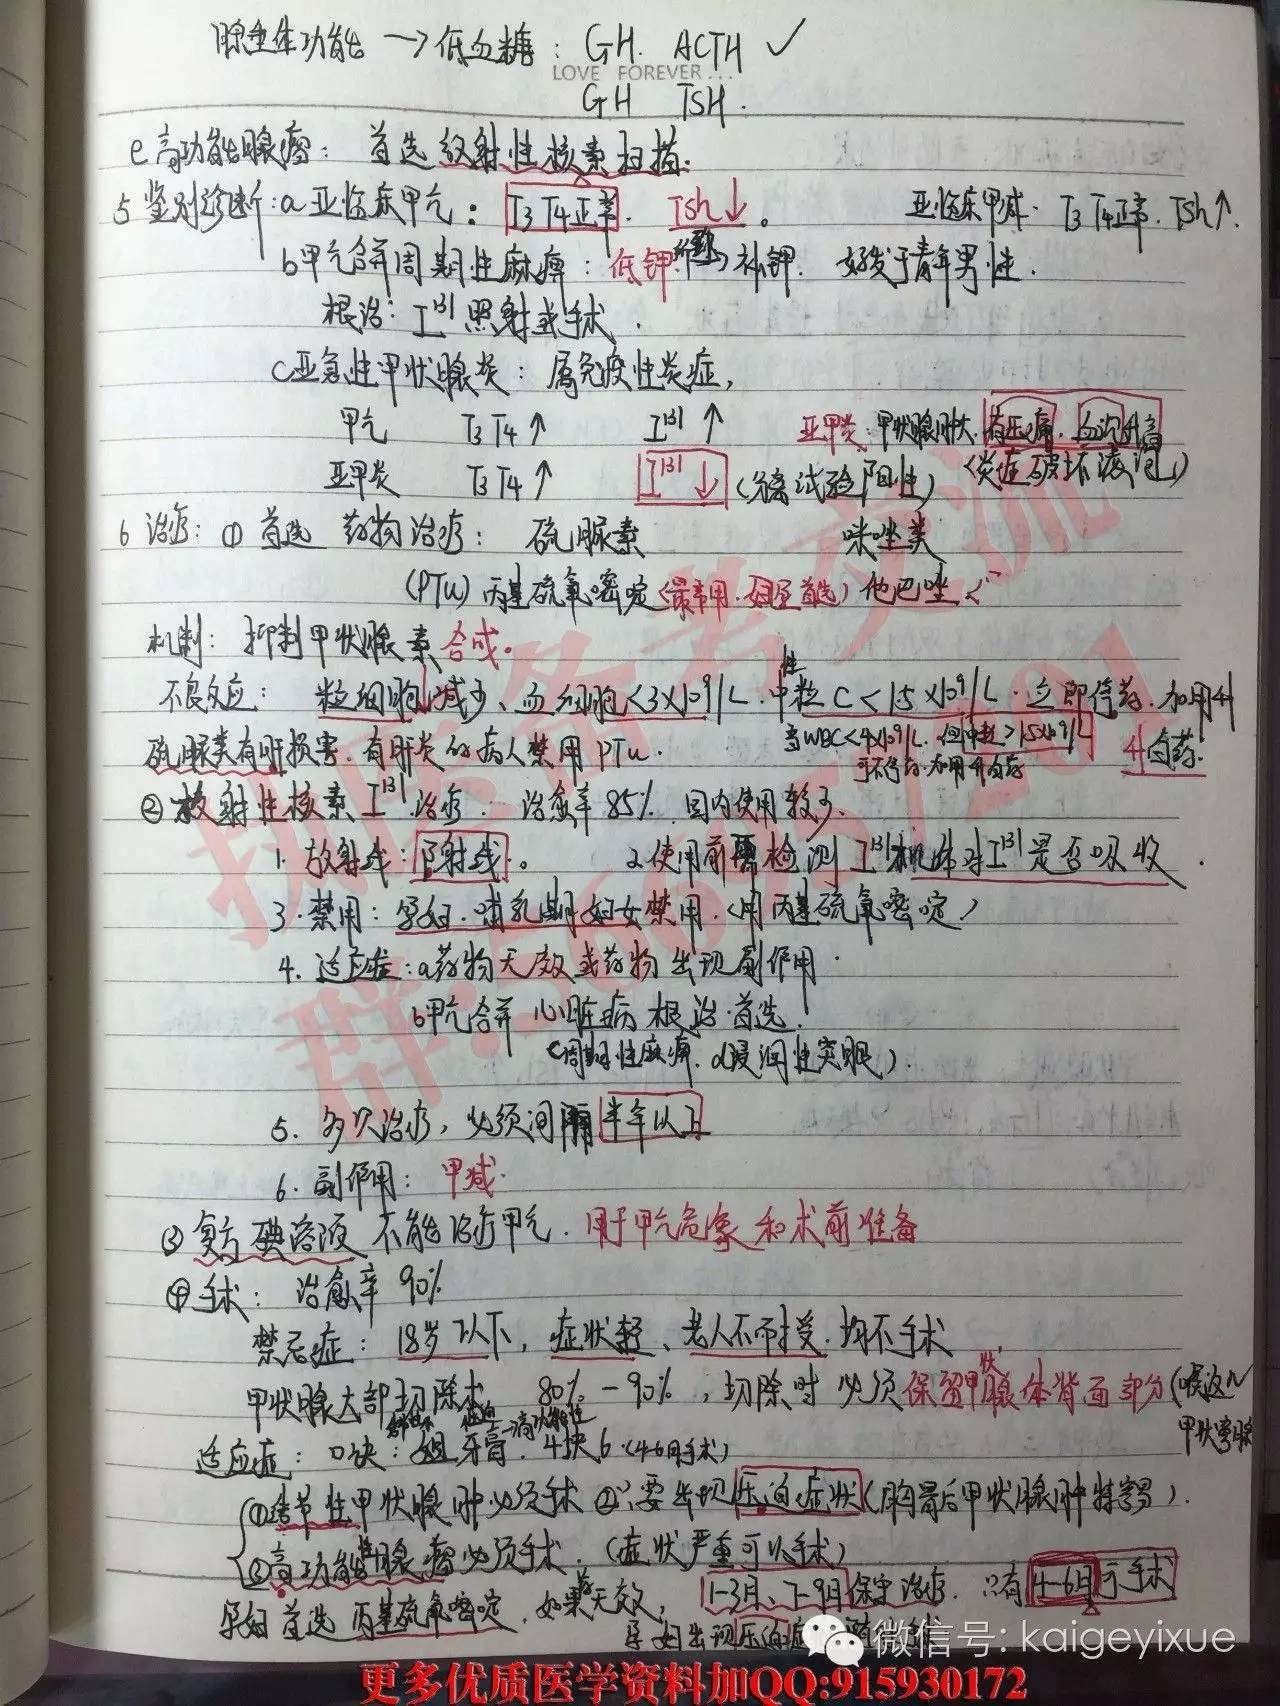 腺垂体功能→低血糖：GH. ACTH ✓
LOVE FOREVER...
GH TSH.
e 高功能腺瘤：首选放射性核素扫描.
5 鉴别诊断：a 亚临床甲亢：T3 T4正常. TSh↓。 亚临床甲减：T3 T4正常. TSh↑.
b 甲亢合并周期性麻痹：低钾. 补钾. 好发于青年男性.
根治：I131 照射或手术.
c 亚急性甲状腺炎：属免疫性炎症,
甲亢 T3 T4↑ I131↑ 亚甲炎：甲状腺肿大. 有压痛. 血沉升高
亚甲炎 T3 T4↑ I131↓ (分离试验阳性) (炎症破坏滤泡)
6 治疗：① 首选 药物治疗：硫脲素 咪唑类
(PTU) 丙基硫氧嘧啶 (最常用. 妊娠首选) 他巴唑
机制：抑制甲状腺素合成。
不良反应：粒细胞减少、血细胞<3×10⁹/L. 中性粒C<1.5×10⁹/L. 立即停药. 加用升
硫脲类有肝损害. 有肝炎的病人禁用PTU. 当WBC<4×10⁹/L. 但中粒>1.5×10⁹/L 升白药.
可不停药. 加用升白药
② 放射性核素 I131 治疗：治愈率85%. 国内使用较少.
1. 放射线：β射线。 2. 使用前需检测I131机体对I131是否吸收.
3. 禁用：孕妇. 哺乳期妇女禁用. (用丙基硫氧嘧啶)
4. 适应症：a 药物无效或药物出现副作用.
b 甲亢合并 心脏病 根治 首选.
c 周期性麻痹. d 浸润性突眼).
5. 多次治疗, 必须间隔半年以上
6. 副作用：甲减.
③ 复方碘溶液 不能治疗甲亢. 用于甲亢危象和术前准备
④ 手术：治愈率 90%
禁忌症：18岁以下, 症状轻、老人不耐受. 均不手术
甲状腺大部切除术 80%-90%, 切除时必须保留甲状腺体背面部分 (喉返N
甲状旁腺
适应症：口诀：姐牙膏. 4块6. (4-6月手术)
① 结节性甲状腺肿必须手术 ② 只要出现压迫症状 (胸骨后甲状腺肿特容易).
③ 高功能腺瘤必须手术. (症状严重可以手术)
孕妇首选 丙基硫氧嘧啶. 如果药无效, 1-3月、7-9月保守治疗. 只有4-6月可手术
孕妇出现压迫
微信号: kaigeyixue
执医备考交流
群:566957201
更多优质医学资料加QQ:915930172